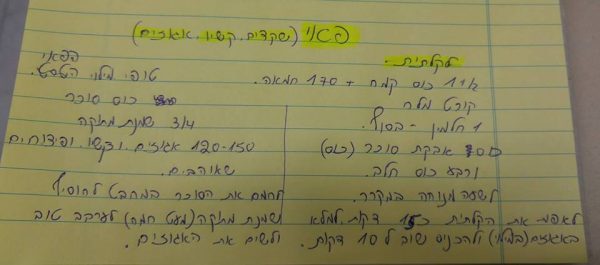 פאי (שקדים, קשיו, אגוזים)
לקלתית.
1 1/2 כוס קמח + 170 חמאה.
קורט מלח
1 חלמון - בסוף.
אבקת סוכר (כוס)
ורבע כוס חלב.
לשעה מנוחה במקרר.
לאפות את הקלתית כ 15 דקות. למלא
באגוזים (במילוי) ולהכניס שוב ל 10 דקות.
הפאי
טופי מילוי
כוס סוכר
3/4 שמנת מתוקה
120-150 אגוזים, וקשיו, ופיצוחים
שאוהבים.
לחמם את הסוכר במחבט להוסיף
שמנת מתוקה (מעט חמה) לערבב טוב
ולשים את האגוזים.